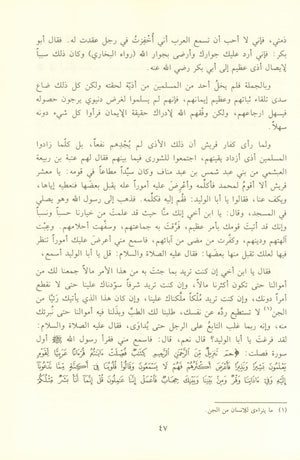 ذمتي، فإني لا أحب أن تسمع العرب أني أُخفِرْتُ في رجل عقدت له. فقال أبو
بكر: أرد عليك جوارك وأرضى بجوار الله (رواه البخاري) وكان ذلك سبباً
لإيصال أذى عظيم إلى أبي بكر رضي الله عنه.
وبالجملة فلم يخلُ أحد من المسلمين من أذيَّة لحقته ولكن كل ذلك ضاع
سدى تلقاء ثباتهم وعظيم إيمانهم، فإنهم لم يسلموا لغرض دنيوي يرجون حصوله
فيسهل ارجاعهم، ولكن وفَّقهم الله لإدراك حقيقة الإيمان فرأوا كل شيء دونه
سهلاً.
ولما رأى كفار قريش أن ذلك الأذى لم يُجْدِهم نفعاً، بل كلَّما زادوا
المسلمين أذى ازداد يقينهم، اجتمعوا للشورى فيما بينهم فقال لهم عتبة بن ربيعة
العبشمي من بني عبد شمس بن عبد مناف وكان سيِّداً مطاعاً في قومه: يا معشر
قريش ألا أقومُ لمحمد فأكلِّمه وأعْرِضَ عليه أموراً عله يقبل بعضَها فنعطيه إياها،
ويكف عنا، فقالوا يا أبا الوليد: فقُم إليه فكلِّمه. فذهب إلى رسول الله وهو يصلي
في المسجد، وقال: يا ابن أخي إنك منَّا حيث قد علمتَ من خيارنا حسباً ونسباً
وإنك قد أتيتَ قومك بأمر عظيم، فرَّقْتَ به جماعتهم، وسفَّهت أحلامهم. وعِبْت
آلهتهم ودينهم، وكفَّرت من مضى من آبائهم، فاسمع مني أعرضُ عليك أموراً تنظر
فيها لعلك تقبل منها بعضها. فقال عليه الصلاة والسلام: قل يا أبا الوليد أسمع،
فقال يا ابن أخي إن كنت تريد بما جئتَ به من هذا الأمر مالاً جمعنا لك من
أموالنا حتى تكون أكثرنا مالاً، وإن كنت تريد شرفاً سوّدناك علينا حتى لا نقطع
أمراً دونك، وإن كنت تريد مُلْكاً ملَّكناك علينا، وإن كان هذا الذي يأتيك رَئِيًّا من
الجن(١) لا تستطيع ردَّه عن نفسك، طلبنا لك الطبَّ وبذلْنا فيه أموالنا حتى نُبرئك
منه، وإنه ربما غلب التابعُ على الرجل حتى يُداوَى، فقال عليه الصلاة والسلام:
لقد فرغتَ يا أبا الوليد؟ قال نعم، قال: فاسمع مني فقرأ رسول الله ﷺ أول
سورة فصلت: ﴿حمٓ تَنزِيلٌ مِّنَ الرَّحْمَٰنِ الرَّحِيمِ كِتَابٌ فُصِّلَتْ آيَاتُهُ قُرْآنًا عَرَبِيًّا لِّقَوْمٍ
يَعْلَمُونَ بَشِيرًا وَنَذِيرًا فَأَعْرَضَ أَكْثَرُهُمْ فَهُمْ لَا يَسْمَعُونَ وَقَالُوا قُلُوبُنَا فِي أَكِنَّةٍ مِّمَّا تَدْعُونَا
إِلَيْهِ وَفِي آذَانِنَا وَقْرٌ وَمِنْ بَيْنِنَا وَبَيْنِكَ حِجَابٌ فَاعْمَلْ إِنَّنَا عَامِلُونَ قُلْ إِنَّمَا أَنَا بَشَرٌ مِّثْلُكُمْ
(١) ما يتراءى للإنسان من الجن.
٤٧